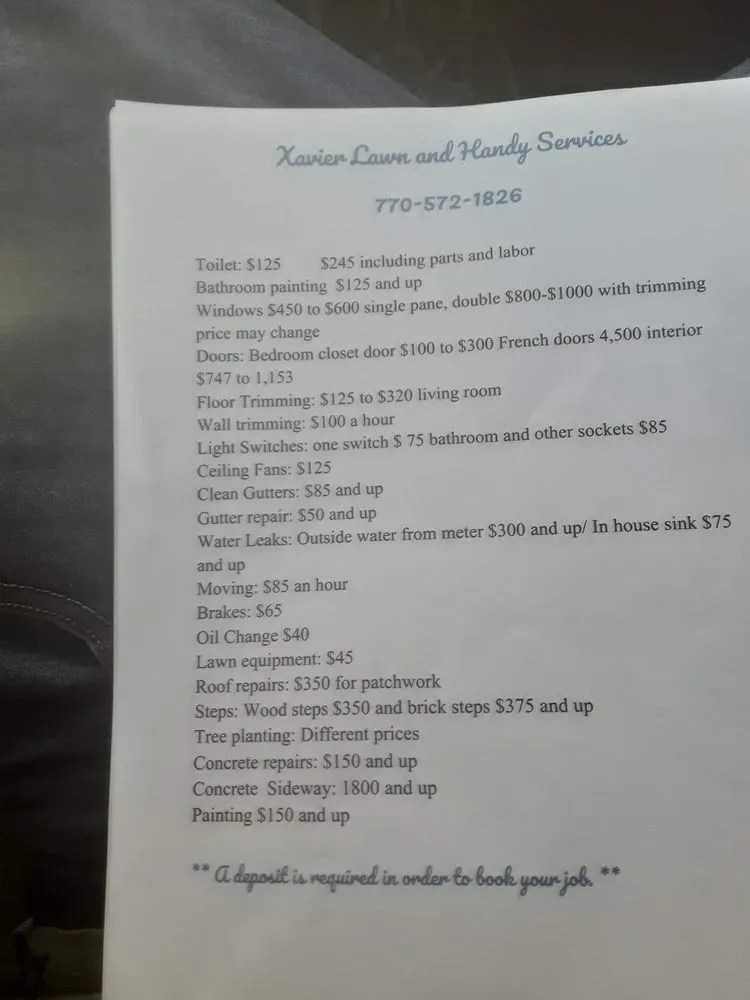 Xavier Lawn and Handy Services
770-572-1826
Toilet: $125 $245 including parts and labor
Bathroom painting $125 and up
Windows $450 to $600 single pane, double $800-$1000 with trimming
price may change
Doors: Bedroom closet door $100 to $300 French doors 4,500 interior
$747 to 1,153
Floor Trimming: $125 to $320 living room
Wall trimming: $100 a hour
Light Switches: one switch $ 75 bathroom and other sockets $85
Ceiling Fans: $125
Clean Gutters: $85 and up
Gutter repair: $50 and up
Water Leaks: Outside water from meter $300 and up/ In house sink $75
and up
Moving: $85 an hour
Brakes: $65
Oil Change $40
Lawn equipment: $45
Roof repairs: $350 for patchwork
Steps: Wood steps $350 and brick steps $375 and up
Tree planting: Different prices
Concrete repairs: $150 and up
Concrete Sideway: 1800 and up
Painting $150 and up
** A deposit is required in order to book your job. **